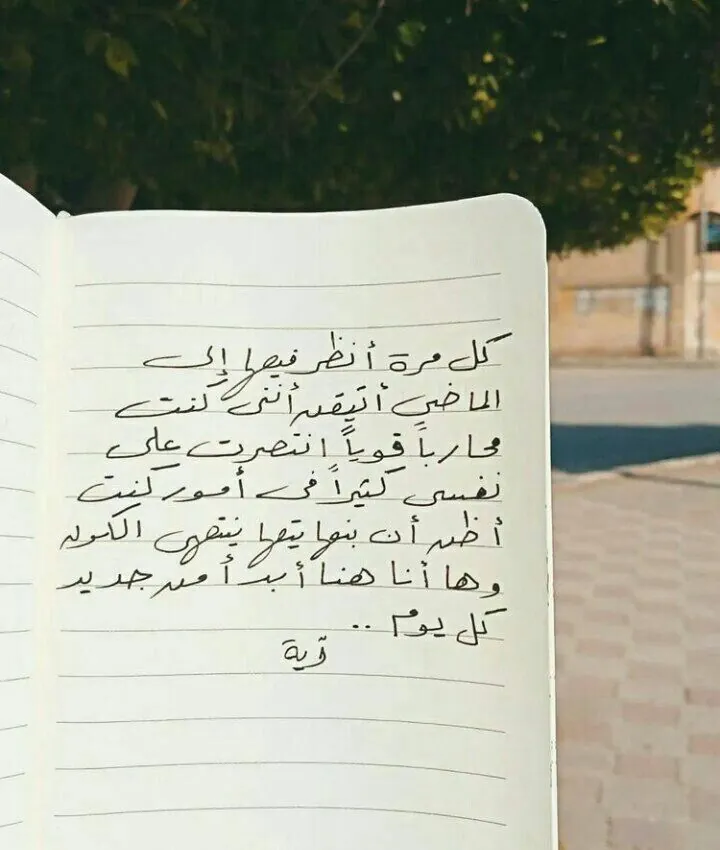 كل مرة أنظر فيها إلى
الماضي أتيقن أنني كنت
محارباً قوياً انتصرت على
نفسي كثيراً في أمور كنت
أظن أن بنهايتها ينتهي الكون
وها أنا هنا أبدأ من جديد
كل يوم ..
آية